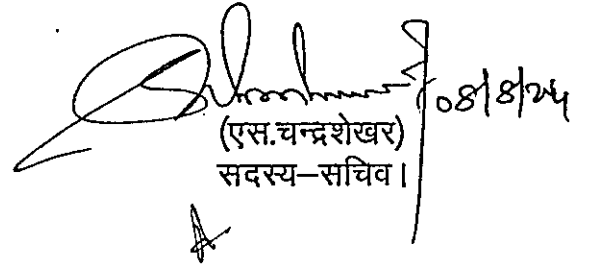 08/8/24
(एस.चन्द्रशेखर)
सदस्य–सचिव।